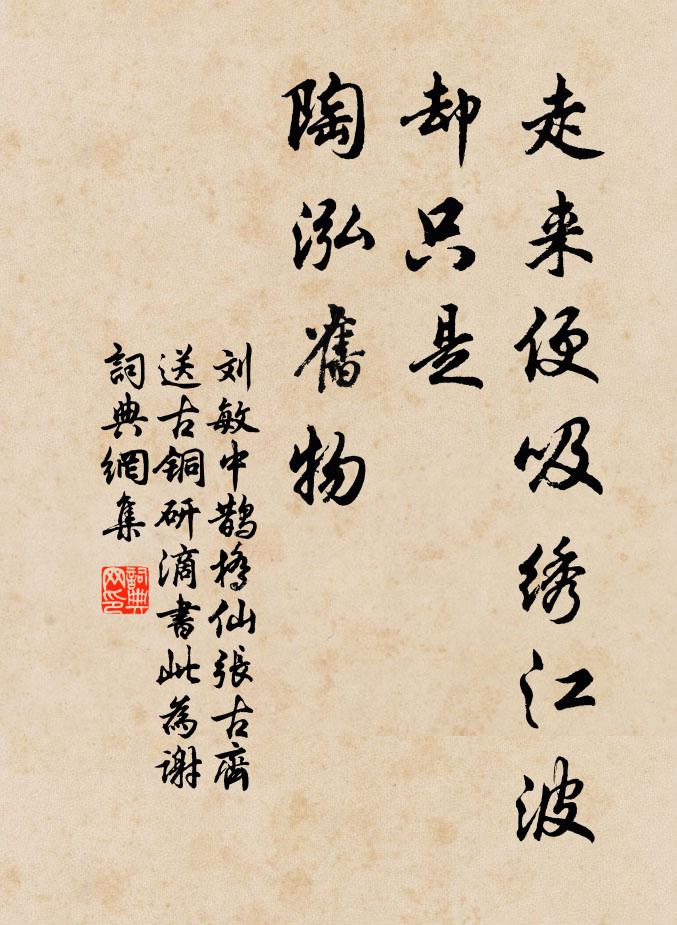 走来便吸绣江波
却只是
陶泓舊物
刘敏中鹊橋仙張古齋
送古銅研滴書此為谢
詞典網集
詞典
网印